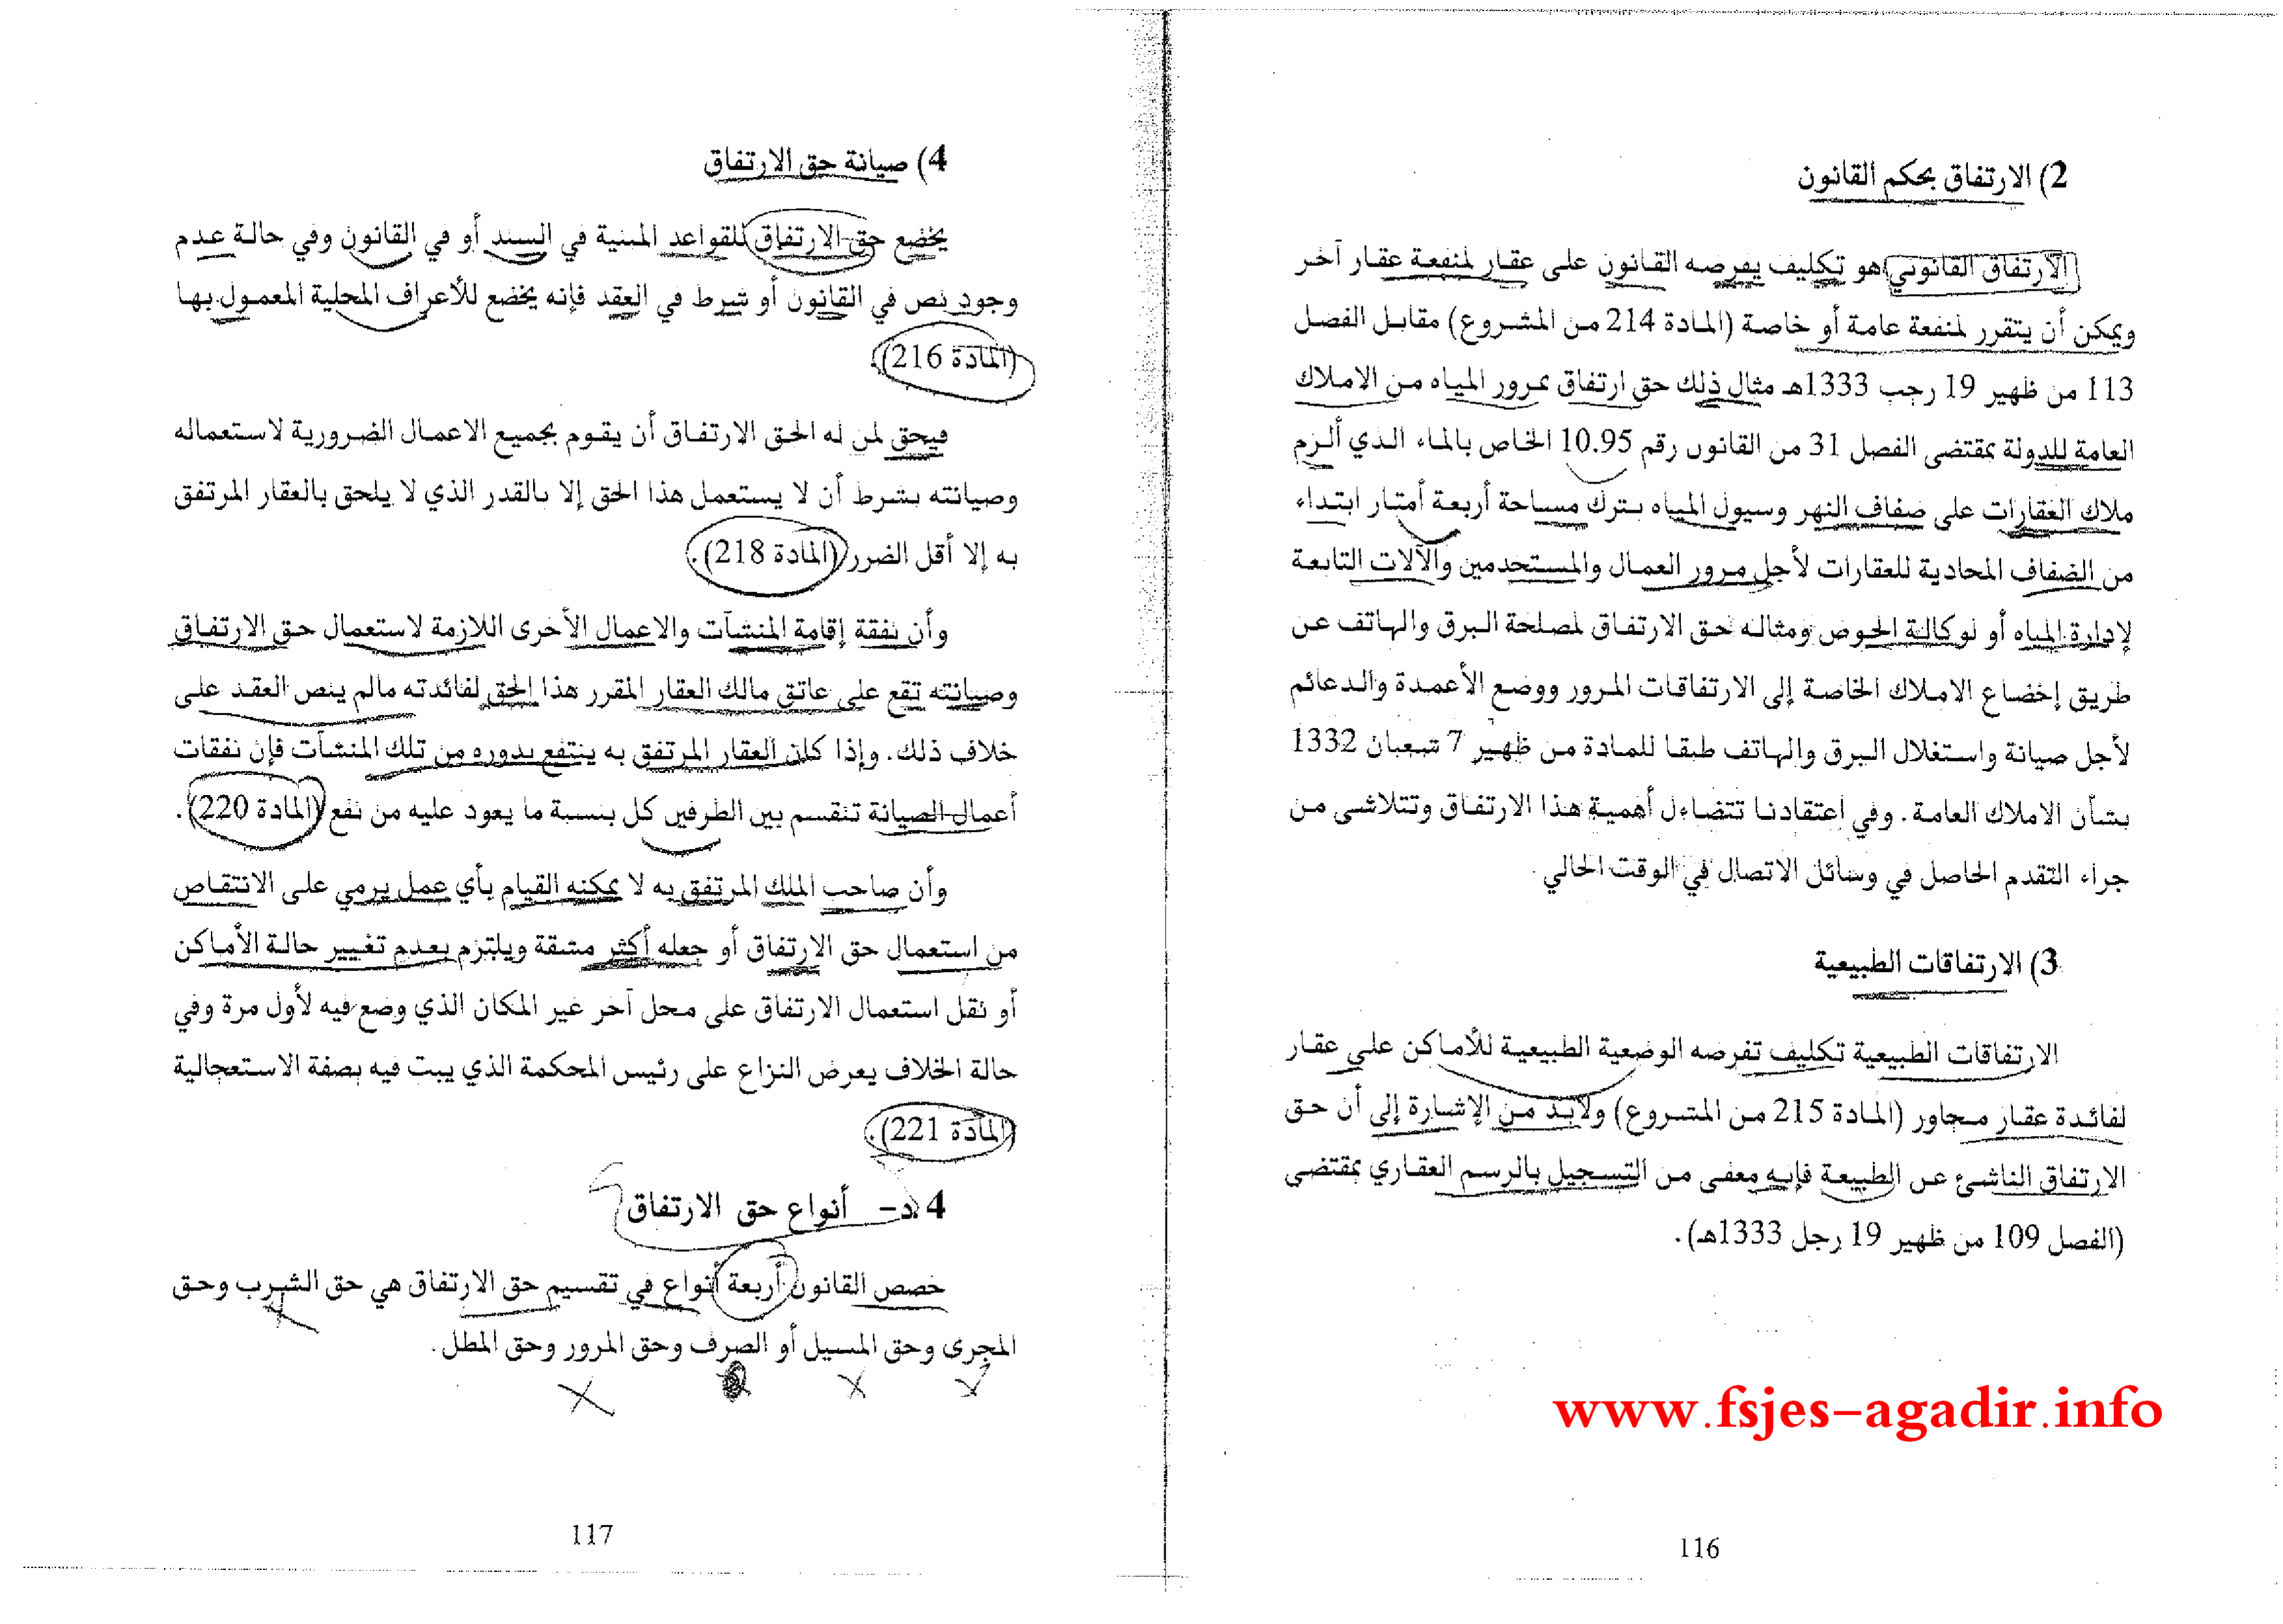 2) الارتفاق بحكم القانون
الارتفاق القانوني هو تكليف يفرضه القانون على عقار لمنفعة عقار آخر
ويمكن أن يتقرر لمنفعة عامة أو خاصة (المادة 214 من المشروع) مقابل الفصل
113 من ظهير 19 رجب 1333هـ مثال ذلك حق ارتفاق بمرور المياه من الاملاك
العامة للدولة بمقتضى الفصل 31 من القانون رقم 10.95 الخاص بالماء الذي ألزم
ملاك العقارات على ضفاف النهر وسيول المياه بترك مساحة أربعة أمتار ابتداء
من الضفاف المحادية للعقارات لأجل مرور العمال والمستخدمين والآلات التابعة
لإدارة المياه أو لوكالة الحوض ومثاله حق الارتفاق لمصلحة البرق والهاتف عن
طريق إخضاع الاملاك الخاصة إلى الارتفاقات المرور ووضع الأعمدة والدعائم
لأجل صيانة واستغلال البرق والهاتف طبقا للمادة من ظهير 7 شعبان 1332
بشأن الاملاك العامة. وفي اعتقادنا تتضاءل أهمية هذا الارتفاق وتتلاشى من
جراء التقدم الحاصل في وسائل الاتصال في الوقت الحالي.
3) الارتفاقات الطبيعية
الارتفاقات الطبيعية تكليف تفرضه الوضعية الطبيعية للأماكن على عقار
لفائدة عقار مجاور (المادة 215 من المشروع) ولابد من الإشارة إلى أن حق
الارتفاق الناشئ عن الطبيعة فإنه معفى من التسجيل بالرسم العقاري بمقتضى
(الفصل 109 من ظهير 19 رجل 1333هـ).
www.fsjes-agadir.info
116
4) صيانة حق الارتفاق
يخضع حق الارتفاق للقواعد المبنية في السند أو في القانون وفي حالة عدم
وجود نص في القانون أو شرط في العقد فإنه يخضع للأعراف المحلية المعمول بها
(المادة 216).
فيحق لمن له الحق الارتفاق أن يقوم بجميع الاعمال الضرورية لاستعماله
وصيانته بشرط أن لا يستعمل هذا الحق إلا بالقدر الذي لا يلحق بالعقار المرتفق
به إلا أقل الضرر (المادة 218).
وأن نفقة إقامة المنشآت والاعمال الأخرى اللازمة لاستعمال حق الارتفاق
وصيانته تقع على عاتق مالك العقار المقرر هذا الحق لفائدته مالم ينص العقد على
خلاف ذلك. وإذا كان العقار المرتفق به ينتفع بدوره من تلك المنشآت فإن نفقات
أعمال الصيانة تنقسم بين الطرفين كل بنسبة ما يعود عليه من نفع (المادة 220).
وأن صاحب الملك المرتفق به لا يمكنه القيام بأي عمل يرمي على الانتقاص
من استعمال حق الارتفاق أو جعله أكثر مشقة ويلتزم بعدم تغيير حالة الأماكن
أو نقل استعمال الارتفاق على محل آخر غير المكان الذي وضع فيه لأول مرة وفي
حالة الخلاف يعرض النزاع على رئيس المحكمة الذي يبت فيه بصفة الاستعجالية
(المادة 221).
4 د- أنواع حق الارتفاق
خصص القانون أربعة أنواع في تقسيم حق الارتفاق هي حق الشرب وحق
المجرى وحق المسيل أو الصرف وحق المرور وحق المطل.
117